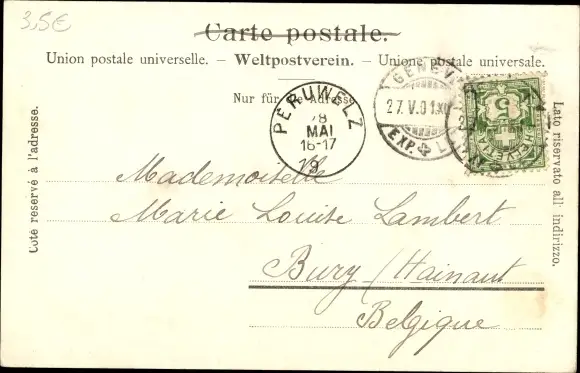 3,5€
Carte postale.
Union postale universelle. – Weltpostverein. – Unione postale universale.
Nur für die Adresse
PERUWELZ
28
MAI
16-17
GENÈV
27.V.01.XII
EXP. L
5
HELVETIA
Côté reservé à l'adresse.
Lato riservato all' indirizzo.
Mademoiselle
Marie Louise Lambert
Bury / Hainaut
Belgique